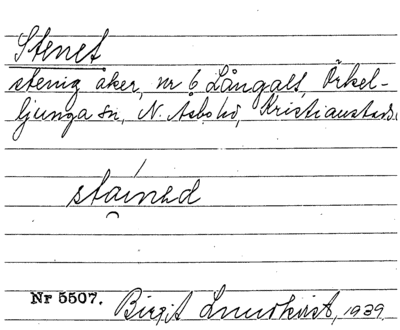 Stenet
stenig åker, nr 6 Långalt, Örkel-
ljunga sn, N. Åsbo hd, Kristianstads
stainəd
Nr 5507. Birgit Lundkvist, 1929